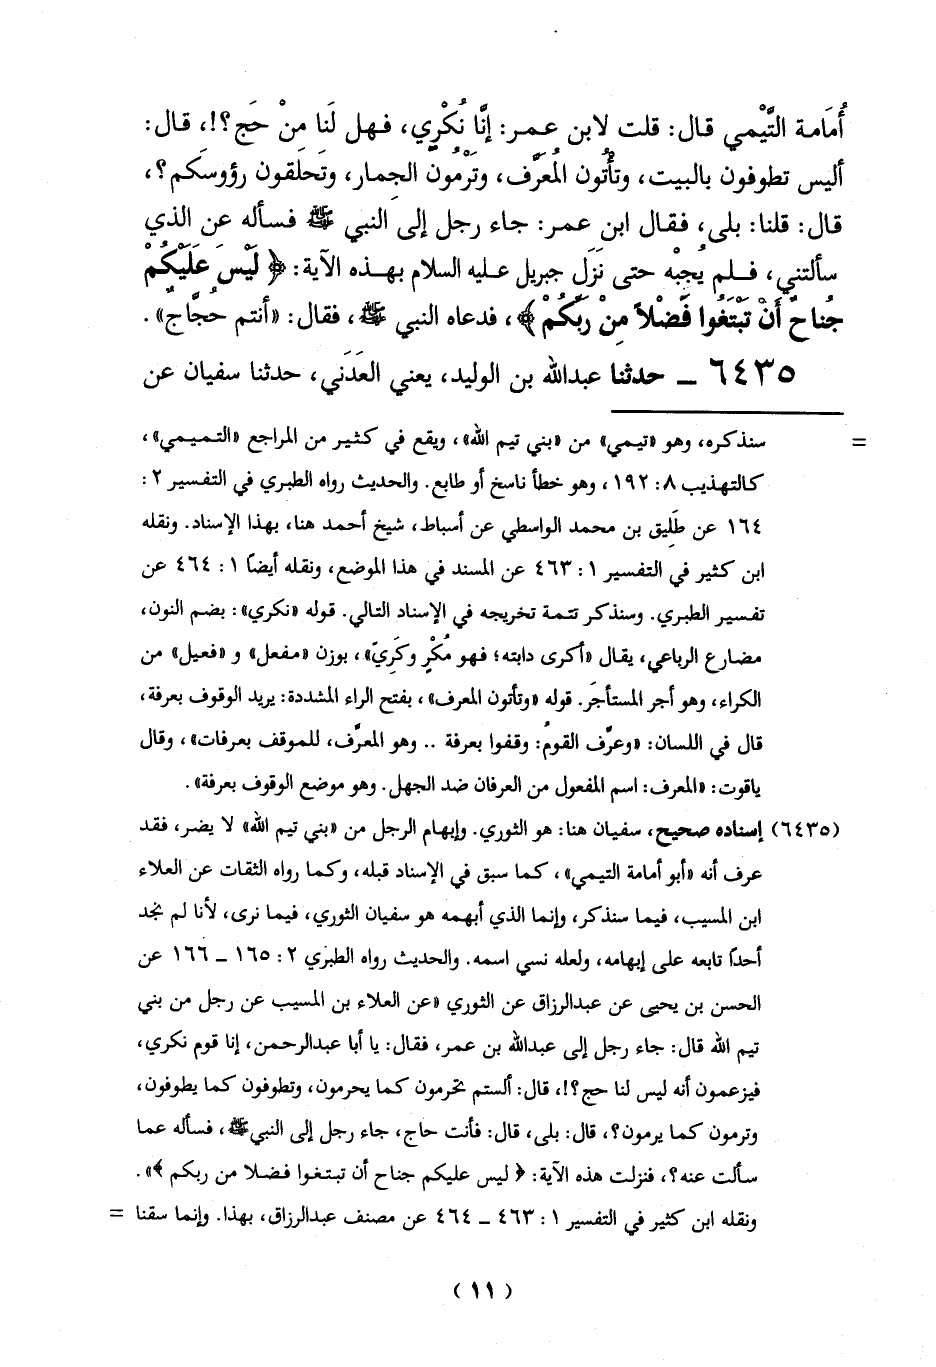 أُمَامة التَّيْمي قال: قلت لابن عمر: إنَّا نُكْرِي، فهل لَنا مِنْ حَج؟!، قال:
أليس تطوفون بالبيت، وتأْتُون المُعَرَّف، وتَرْمُون الجمار، وتَحلقون رؤوسكم؟،
قال: قلنا: بلى، فقال ابن عمر: جاء رجل إلى النبي ﷺ فسأله عن الذي
سألتني، فلم يُجِبْه حتى نَزَل جبريل عليه السلام بهذه الآية: ﴿ لَيْسَ عَلَيْكُمْ
جُناحٌ أَنْ تَبْتَغُوا فَضْلاً مِنْ رَبِّكُمْ ﴾، فدعاه النبي ﷺ، فقال: «أنتم حجَّاج».
٦٤٣٥ ــ حدثنا عبدالله بن الوليد، يعني العَدَني، حدثنا سفيان عن
= سنذكره، وهو «تيمي» من «بني تيم الله»، ويقع في كثير من المراجع «التميمي»،
كالتهذيب ٨: ١٩٢، وهو خطأ ناسخ أو طابع. والحديث رواه الطبري في التفسير ٢:
١٦٤ عن طَلِيق بن محمد الواسطي عن أسباط، شيخ أحمد هنا، بهذا الإسناد. ونقله
ابن كثير في التفسير ١: ٤٦٣ عن المسند في هذا الموضع، ونقله أيضاً ١: ٤٦٤ عن
تفسير الطبري. وسنذكر تتمة تخريجه في الإسناد التالي. قوله «نكري»: بضم النون،
مضارع الرباعي، يقال «أكرى دابته؛ فهو مُكْرٍ وكَرِيّ»، بوزن «مفعل» و «فعيل» من
الكراء، وهو أجر المستأجَر. قوله «وتأتون المعرف»، بفتح الراء المشددة: يريد الوقوف بعرفة،
قال في اللسان: «وعرَّف القومُ: وقفوا بعرفة .. وهو المعرَّف، للموقف بعرفات»، وقال
ياقوت: «المعرف: اسم المفعول من العرفان ضد الجهل. وهو موضع الوقوف بعرفة».
(٦٤٣٥) إسناده صحيح، سفيان هنا: هو الثوري. وإبهام الرجل من «بني تيم الله» لا يضر، فقد
عرف أنه «أبو أمامة التيمي»، كما سبق في الإسناد قبله، وكما رواه الثقات عن العلاء
ابن المسيب، فيما سنذكر، وإنما الذي أبهمه هو سفيان الثوري، فيما نرى، لأنا لم نجد
أحداً تابعه على إبهامه، ولعله نسي اسمه. والحديث رواه الطبري ٢: ١٦٥ ــ ١٦٦ عن
الحسن بن يحيى عن عبدالرزاق عن الثوري «عن العلاء بن المسيب عن رجل من بني
تيم الله قال: جاء رجل إلى عبدالله بن عمر، فقال: يا أبا عبدالرحمن، إنا قوم نكري،
فيزعمون أنه ليس لنا حج؟!، قال: ألستم تحرمون كما يحرمون، وتطوفون كما يطوفون،
وترمون كما يرمون؟، قال: بلى، قال: فأنت حاج، جاء رجل إلى النبي ﷺ، فسأله عما
سألت عنه؟، فنزلت هذه الآية: ﴿ ليس عليكم جناح أن تبتغوا فضلا من ربكم ﴾».
ونقله ابن كثير في التفسير ١: ٤٦٣ ــ ٤٦٤ عن مصنف عبدالرزاق، بهذا. وإنما سقنا =
( ١١ )